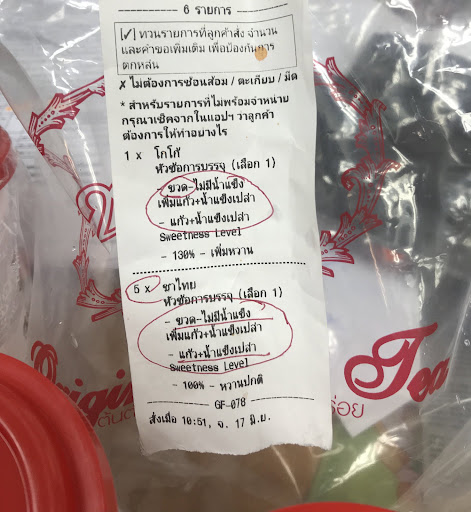 6 รายการ
[✓] ทวนรายการที่ลูกค้าสั่ง จำนวน
และคำขอเพิ่มเติม เพื่อป้องกันการ
ตกหล่น
✗ ไม่ต้องการช้อนส้อม / ตะเกียบ / มีด
* สำหรับรายการที่ไม่พร้อมจำหน่าย
กรุณาเช็คจากในแอปฯ ว่าลูกค้า
ต้องการให้ทำอย่างไร
1 x โกโก้
หัวข้อการบรรจุ (เลือก 1)
- ขวด-ไม่มีน้ำแข็ง
เพิ่มแก้ว+น้ำแข็งเปล่า
- แก้ว+น้ำแข็งเปล่า
Sweetness Level
- 130% - เพิ่มหวาน
5 x ชาไทย
หัวข้อการบรรจุ (เลือก 1)
- ขวด-ไม่มีน้ำแข็ง
เพิ่มแก้ว+น้ำแข็งเปล่า
- แก้ว+น้ำแข็งเปล่า
Sweetness Level
- 100% - หวานปกติ
GF-078
สั่งเมื่อ 10:51, จ. 17 มิ.ย.
Origin
Tea
ต้นต
ร่อย